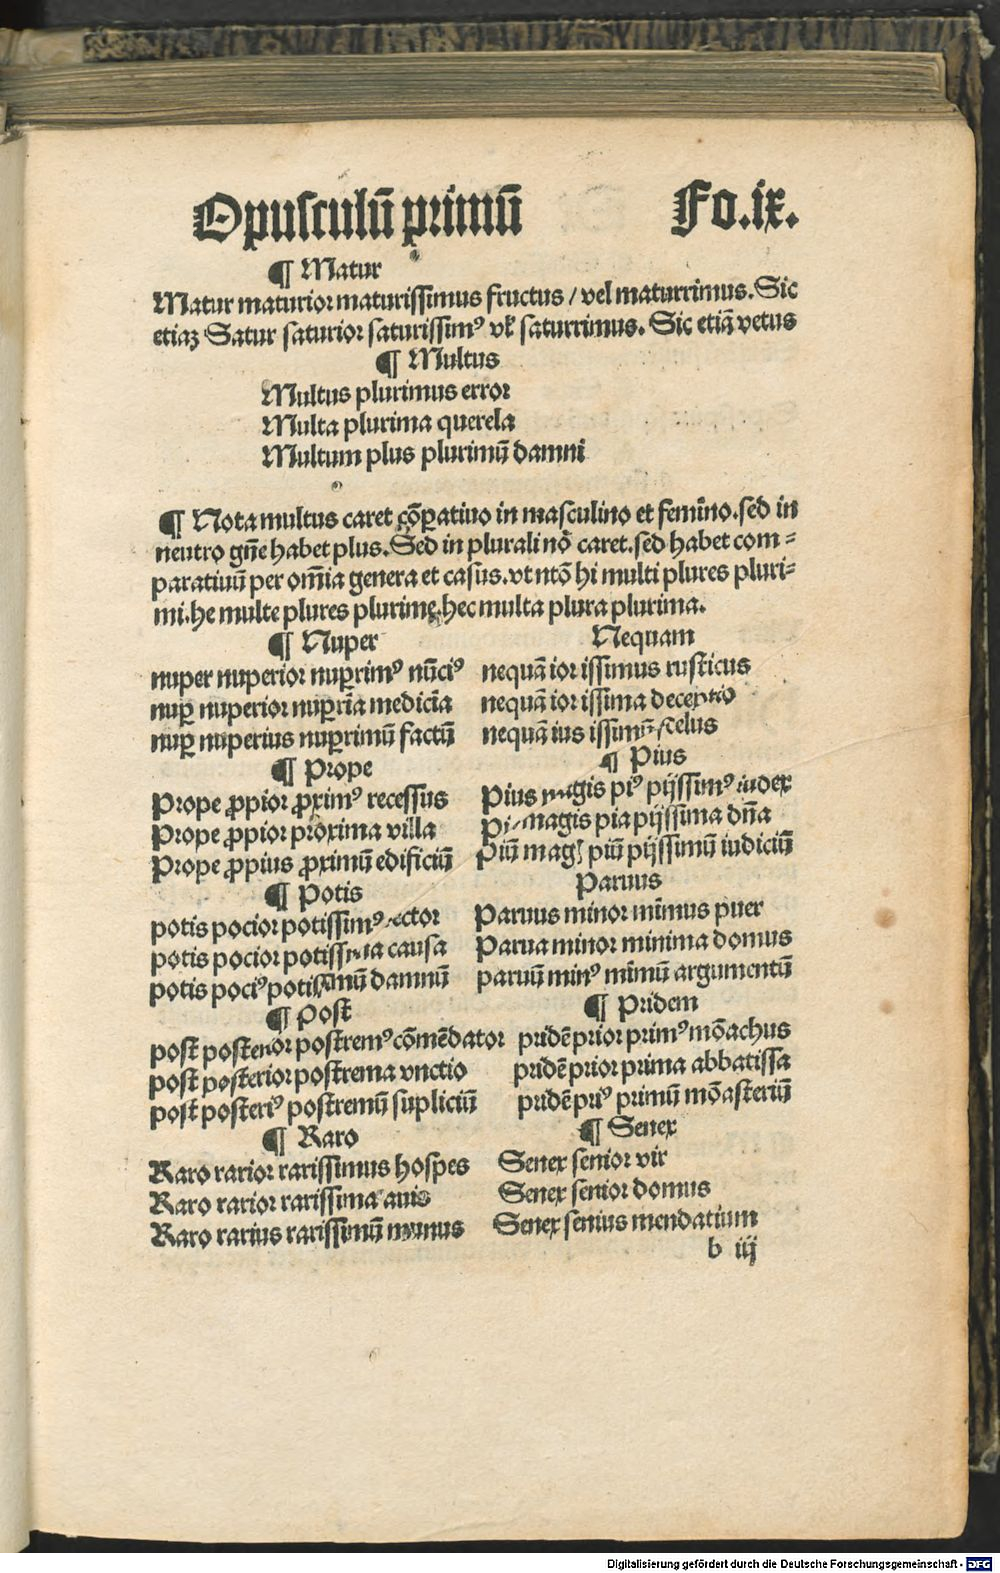 Opusculū primū Fo.ix.
¶ Matur
Matur maturior maturissimus fructus / vel maturrimus. Sic
etiaꝫ Satur saturior saturissimꝰ vl̕ saturrimus. Sic etiā vetus
¶ Multus
Multus plurimus error
Multa plurima querela
Multum plus plurimū damni
¶ Nota multus caret cōꝑatiuo in masculino et femīno. sed in
neutro gn̄e habet plus. Sed in plurali nō caret. sed habet com-
paratiuū per om̄ia genera et casus. vt ntō hi multi plures pluri-
mi. he multe plures plurimę. hec multa plura plurima.
¶ Nuper
nuper nuperior nuꝑrimꝰ nūciꝰ
nuꝑ nuperior nuꝑrīa medicīa
nuꝑ nuperius nuꝑrimū factū
¶ Prope
Prope ꝓpior ꝓximꝰ recessus
Prope ꝓpior proxima villa
Prope ꝓpius ꝓximū edificiū
¶ Potis
potis pocior potissimꝰ rector
potis pocior potissima causa
potis pociꝰ potissimū damnū
¶ Post
post posterior postremꝰ cōmēdator
post posterior postrema vnctio
post posteriꝰ postremū supliciū
¶ Raro
Raro rarior rarissimus hospes
Raro rarior rarissima auis
Raro rarius rarissimū munus
Nequam
nequā ior issimus rusticus
nequā ior issima deceptio
nequā ius issimū scelus
¶ Pius
Pius magis piꝰ pijssimꝰ iudex
Pia magis pia pijssima dn̄a
Piū magꝭ piū pijssimū iudiciū
Paruus
Paruus minor mīmus puer
Parua minor minima domus
paruū minꝰ mīmū argumentū
¶ Pridem
pridē prior primꝰ mōachus
pridē prior prima abbatissa
pridē priꝰ primū mōasteriū
¶ Senex
Senex senior vir
Senex senior domus
Senex senius mendatium
b iij
Digitalisierung gefördert durch die Deutsche Forschungsgemeinschaft - DFG